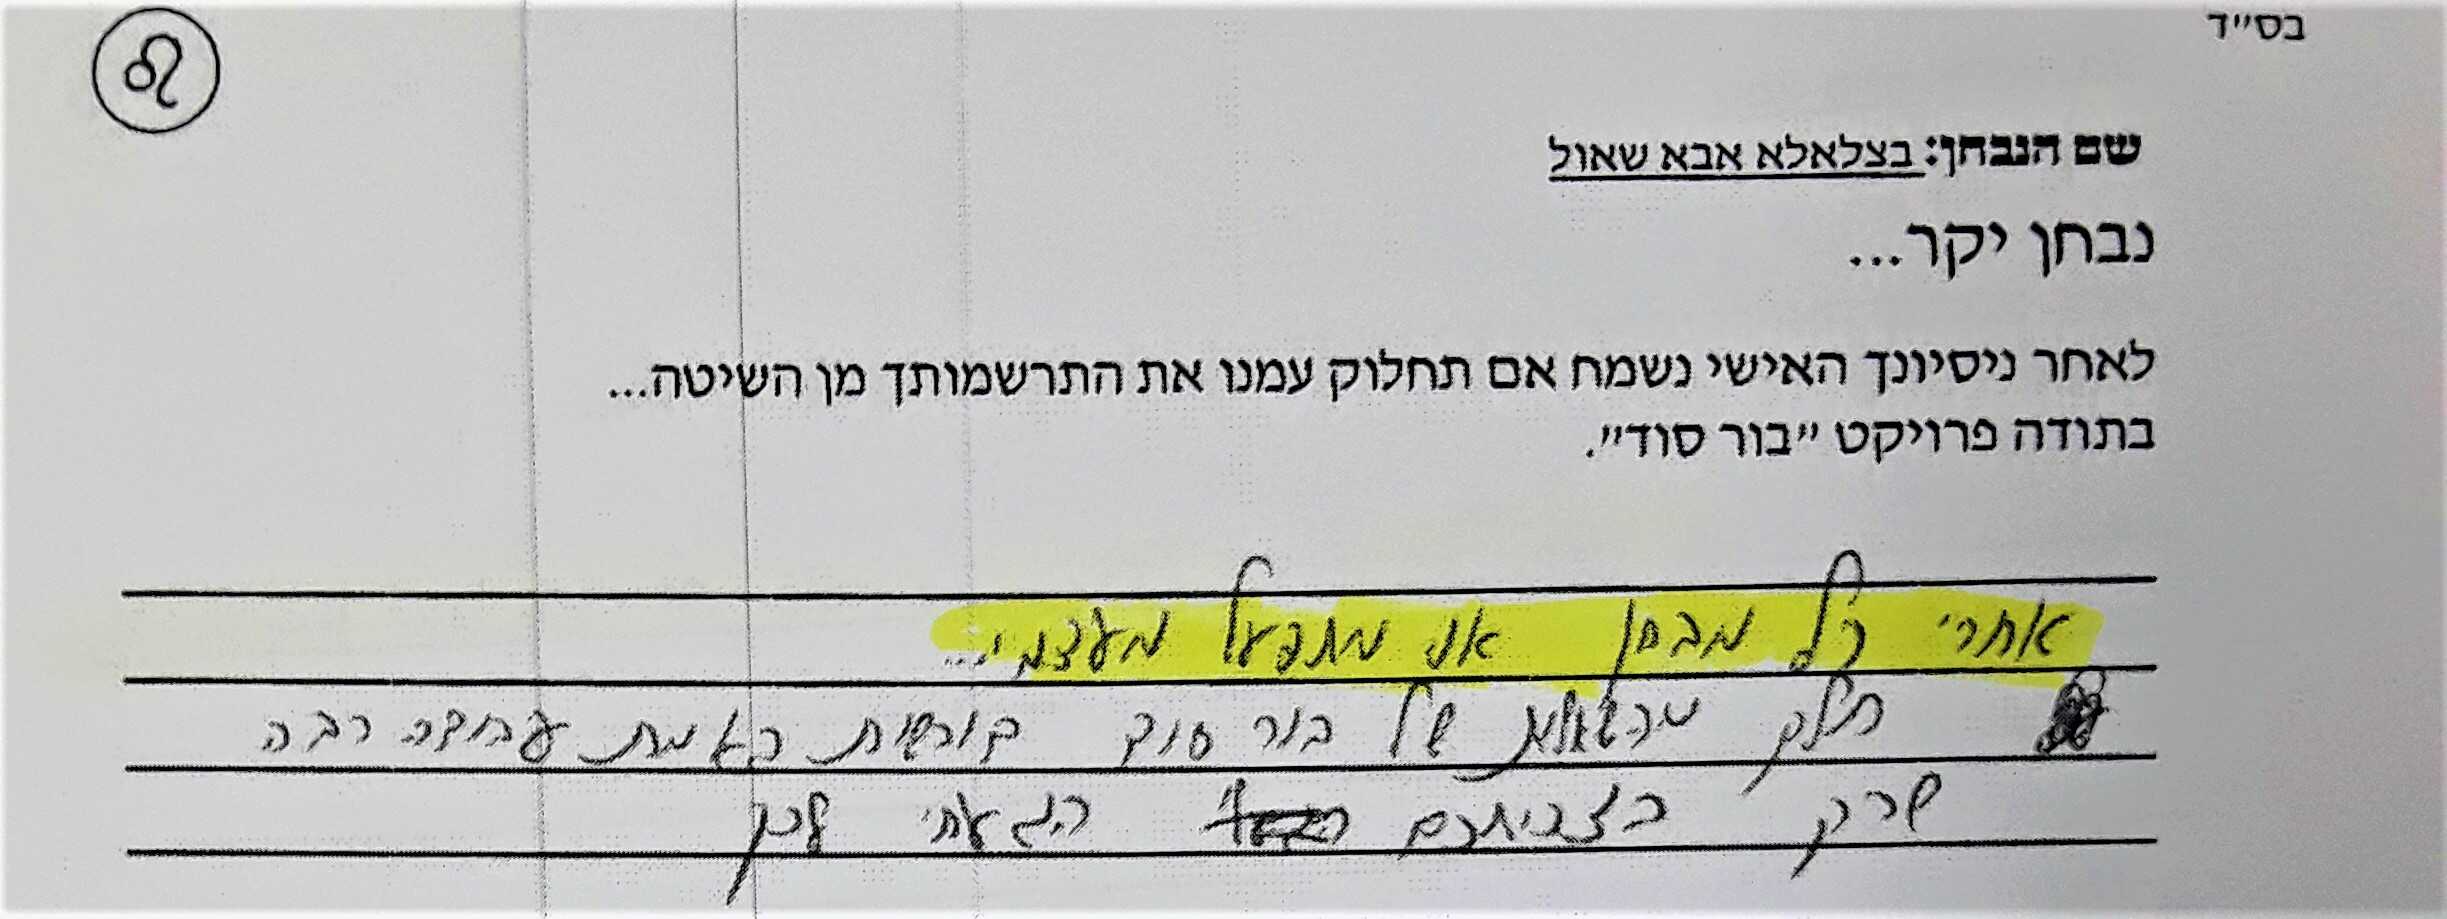 בס״ד
שם הנבחן: בצלאלא אבא שאול
נבחן יקר...
לאחר ניסיונך האישי נשמח אם תחלוק עמנו את התרשמותך מן השיטה...
בתודה פרויקט ״בור סוד״.
אחרי כל מבחן אני מתפעל מעצמי...
חלק מהשאלות של בור סוד דורשות באמת עבודה רבה
שרק בצביתכם הגעתי לכך